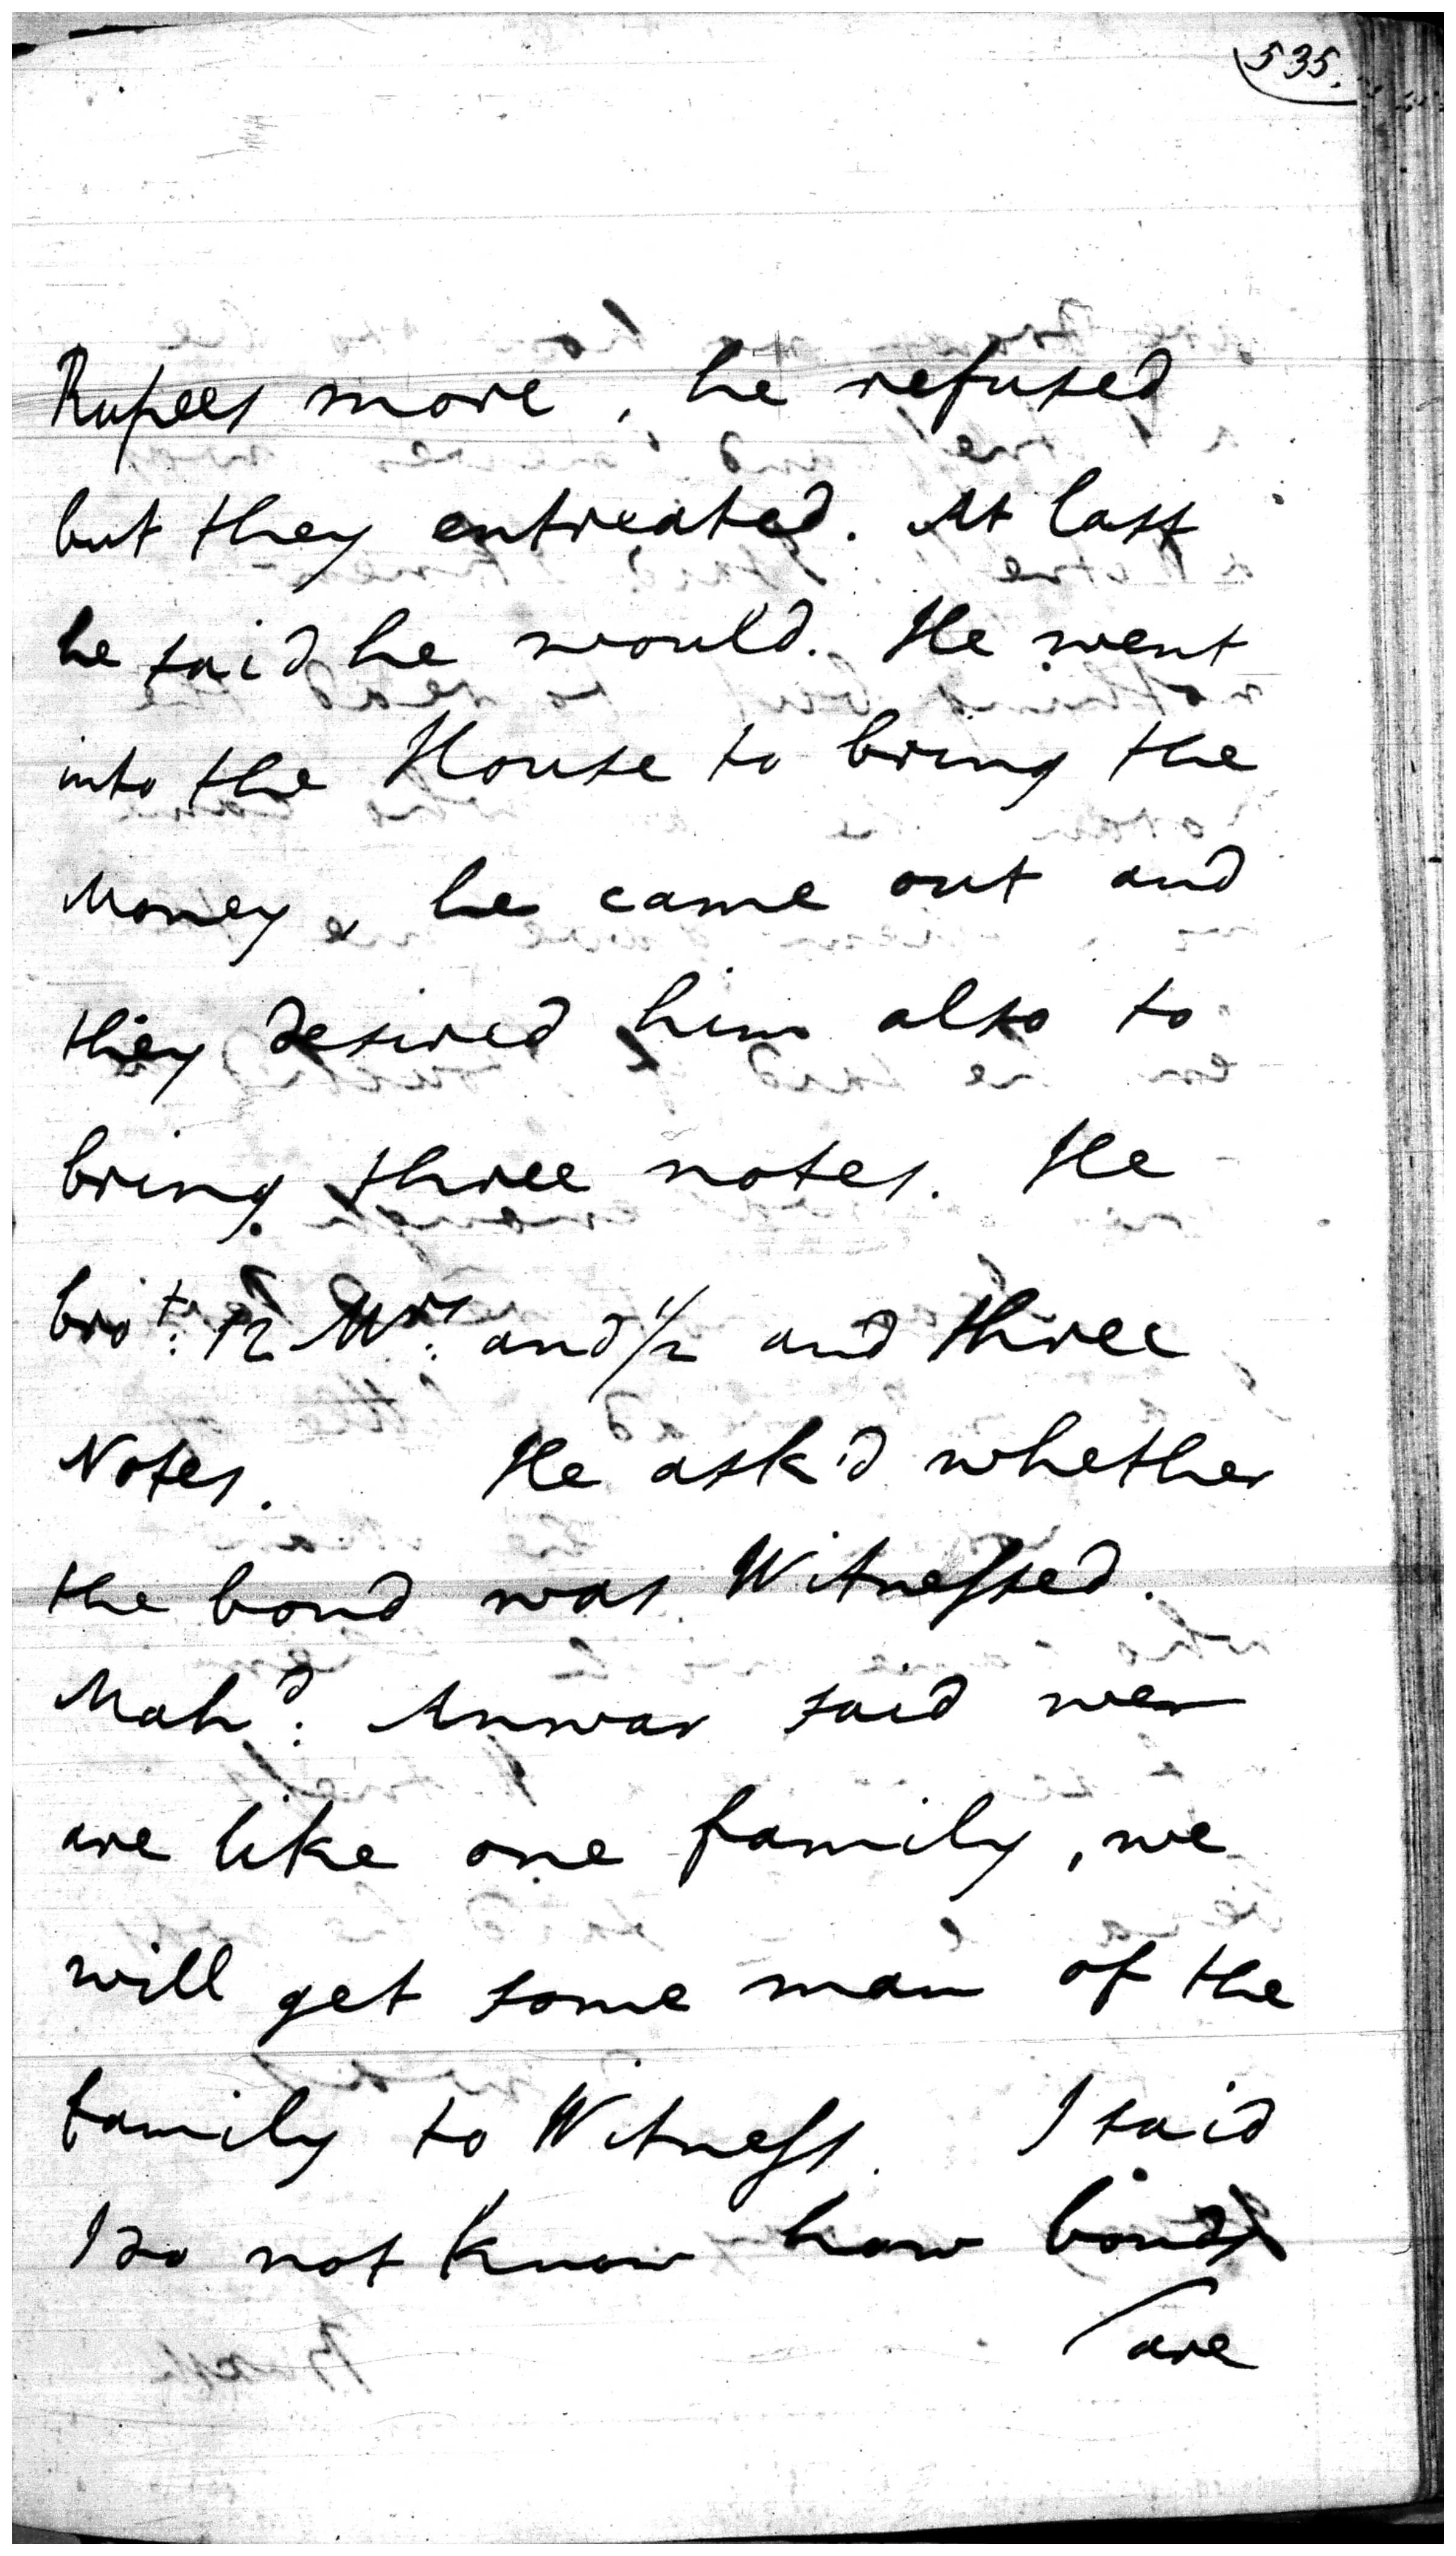 535.
Rupees more, he refused
but they entreated. At last
he said he would. He went
into the House to bring the
Money, he came out and
they desired him also to
bring three notes. He
bro^t: 12 M^rs: and 1/2 and three
Notes. He ask'd whether
the bond was Witnessed.
Mah^d: Anwar said we
are like one family, we
will get some man of the
family to Witness. I said
I do not know how bonds
are